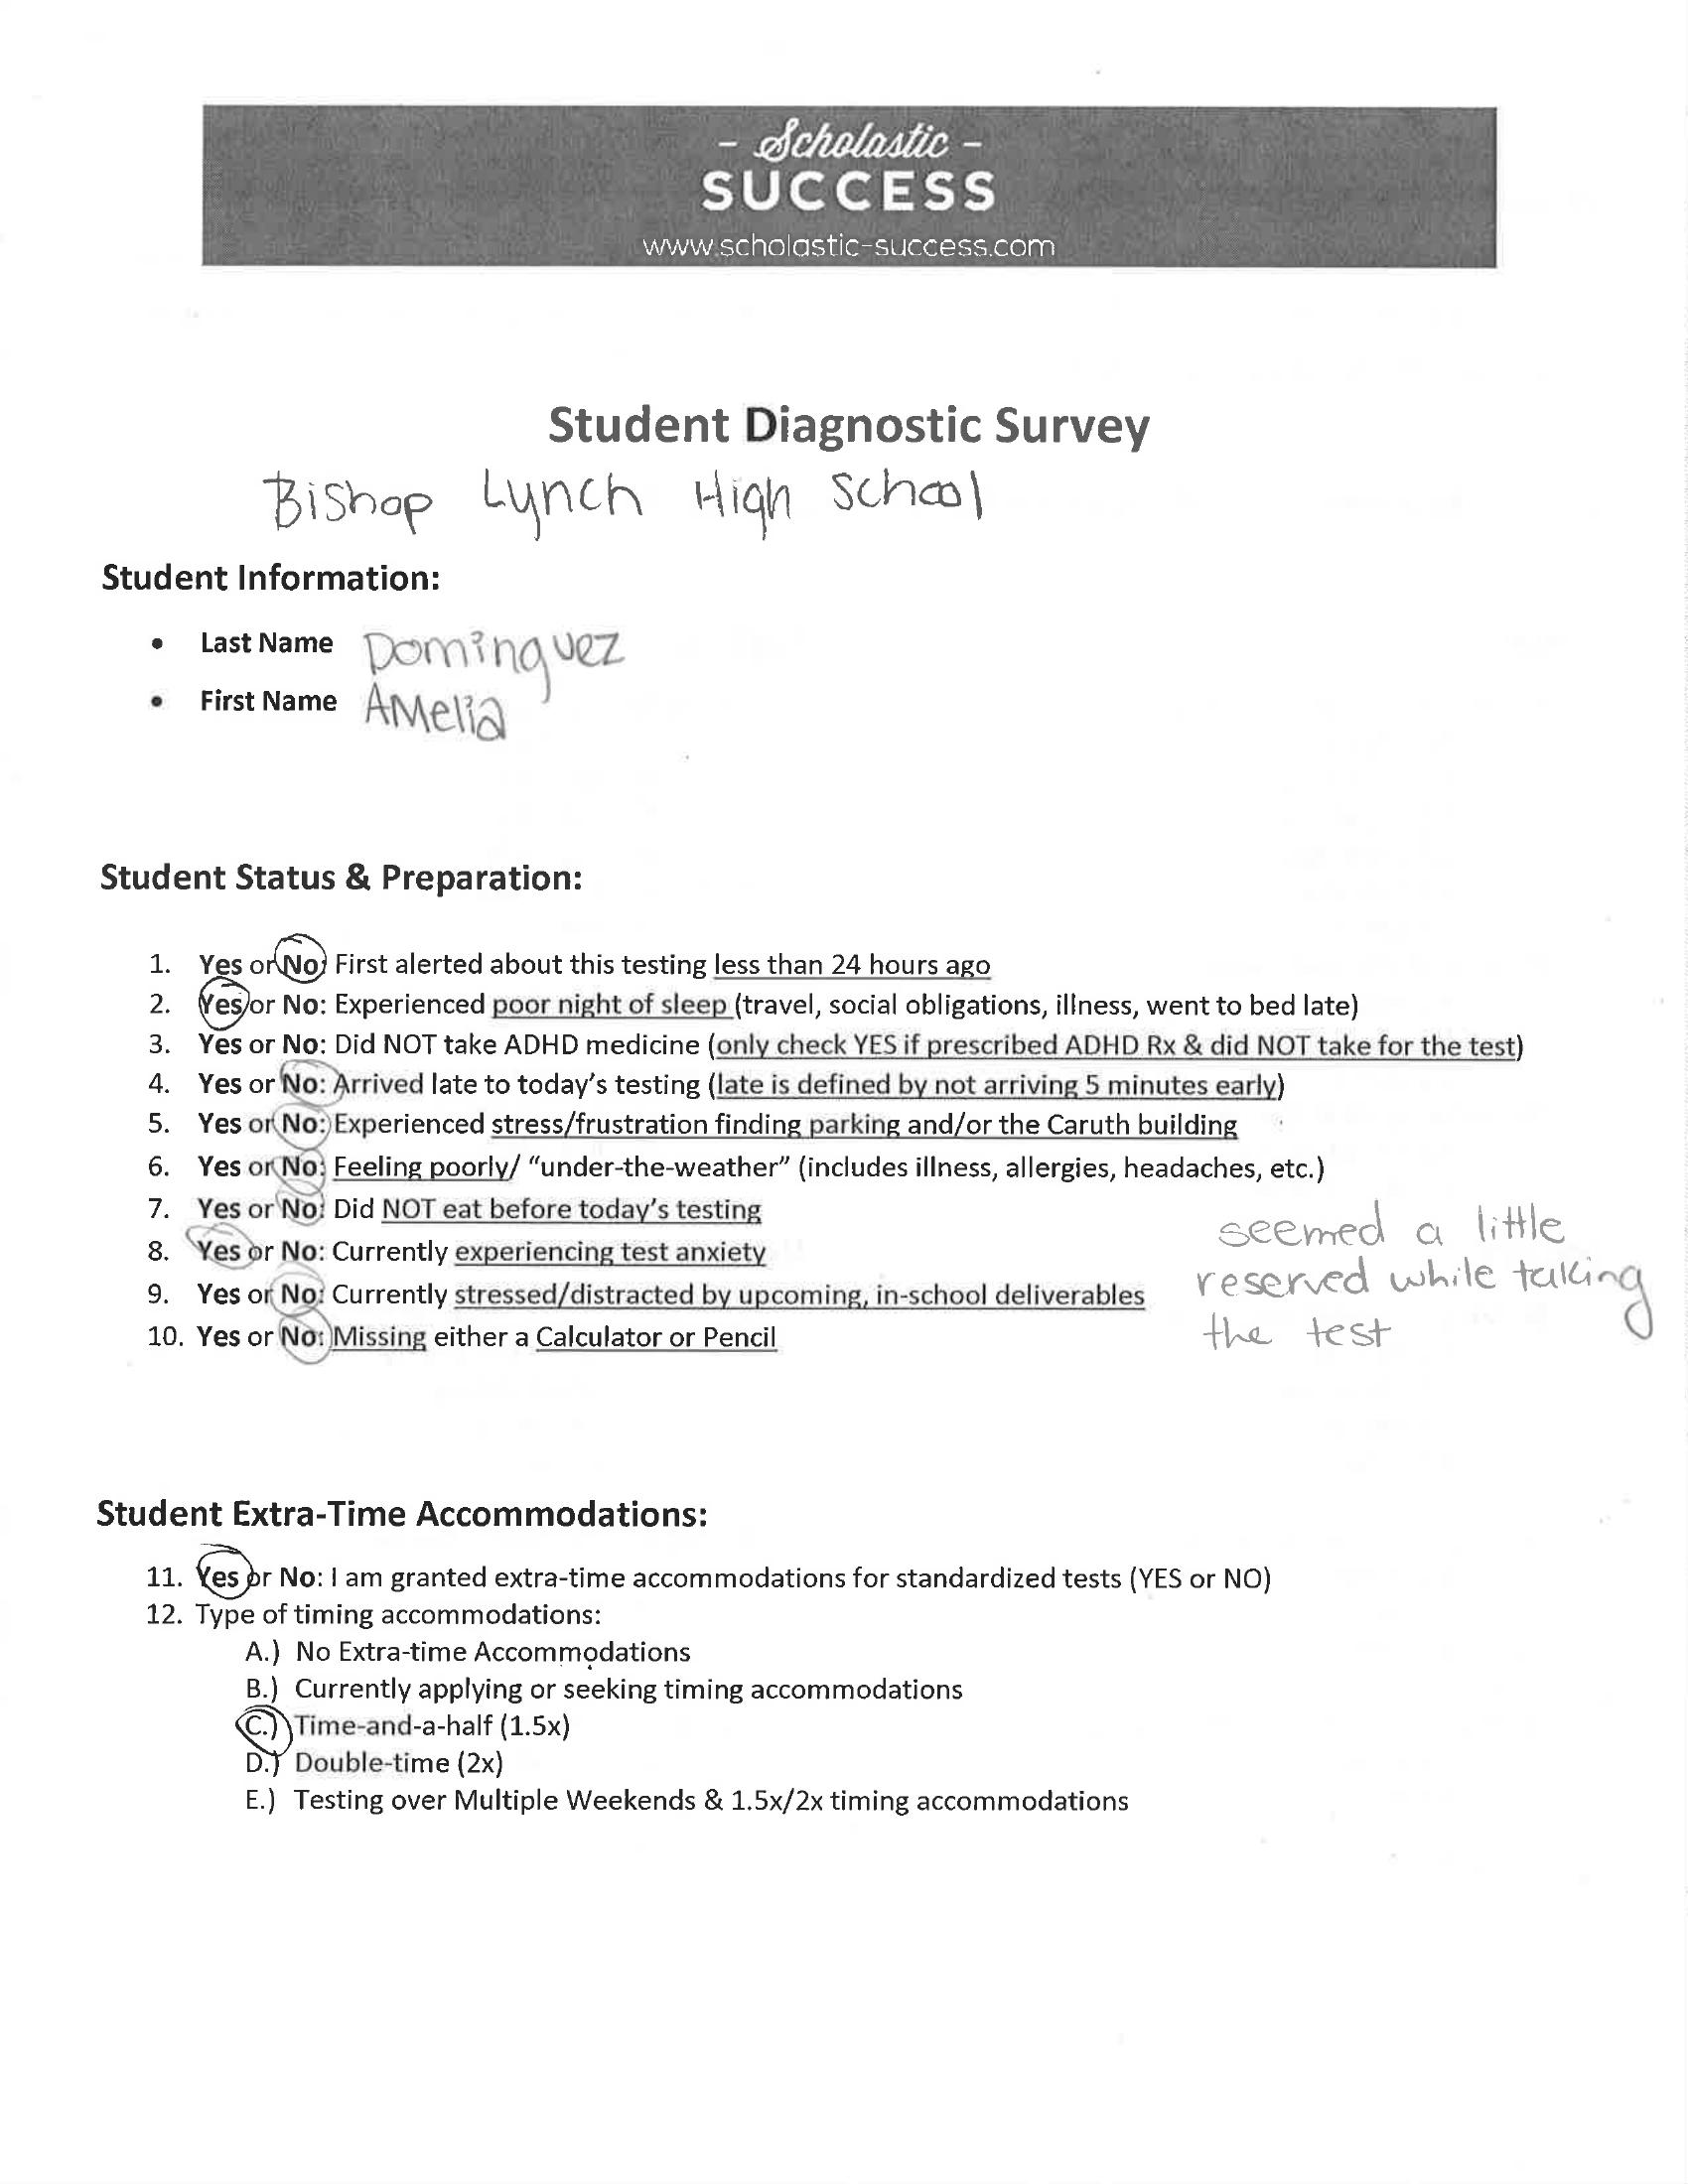 - Scholastic -
SUCCESS
www.scholastic-success.com
Student Diagnostic Survey
Bishop Lynch High School
Student Information:
• Last Name Dominguez
• First Name Amelia
Student Status & Preparation:
1. Yes or No: First alerted about this testing less than 24 hours ago
2. Yes or No: Experienced poor night of sleep (travel, social obligations, illness, went to bed late)
3. Yes or No: Did NOT take ADHD medicine (only check YES if prescribed ADHD Rx & did NOT take for the test)
4. Yes or No: Arrived late to today's testing (late is defined by not arriving 5 minutes early)
5. Yes or No: Experienced stress/frustration finding parking and/or the Caruth building
6. Yes or No: Feeling poorly/ "under-the-weather" (includes illness, allergies, headaches, etc.)
7. Yes or No: Did NOT eat before today's testing
8. Yes or No: Currently experiencing test anxiety
9. Yes or No: Currently stressed/distracted by upcoming, in-school deliverables
10. Yes or No: Missing either a Calculator or Pencil
seemed a little
reserved while taking
the test
Student Extra-Time Accommodations:
11. Yes or No: I am granted extra-time accommodations for standardized tests (YES or NO)
12. Type of timing accommodations:
A.) No Extra-time Accommodations
B.) Currently applying or seeking timing accommodations
C.) Time-and-a-half (1.5x)
D.) Double-time (2x)
E.) Testing over Multiple Weekends & 1.5x/2x timing accommodations